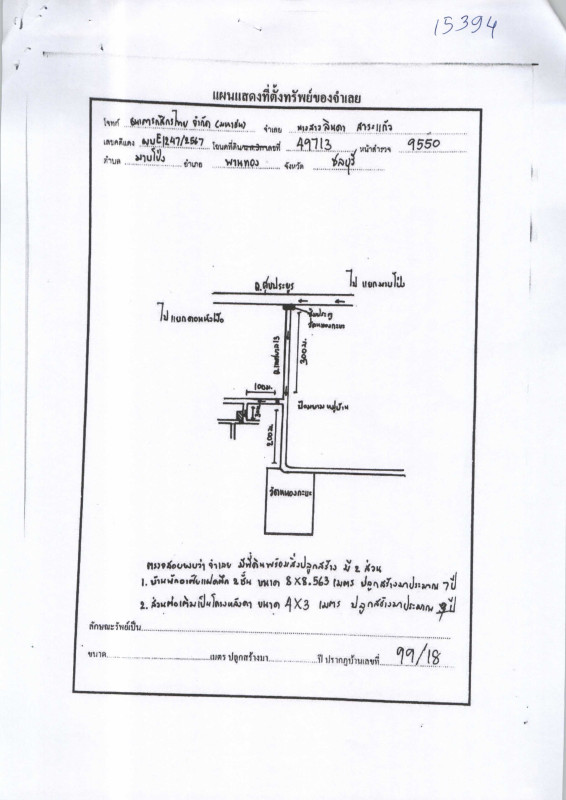 15394
แผนแสดงที่ตั้งทรัพย์ของจำเลย
โจทก์ ธนาคารกสิกรไทย จำกัด (มหาชน) จำเลย นางสาวลินดา สาระแก้ว
เลขคดีแดง ผบE1247/2567 โฉนดที่ดิน เลขที่ 49713 หน้าสำรวจ 9550
ตำบล มาบโป่ง อำเภอ พานทอง จังหวัด ชลบุรี
ถ.ศุขประยูร
ไป แยกมาบโป่ง
ไป แยกดอนหัวฬ่อ
ซุ้มประตู
วัดหนองกะขะ
ถ.เทศบาล 13
300 ม.
100 ม.
ป้อมยาม หมู่บ้าน
200 ม.
วัดหนองกะขะ
ตรวจสอบพบว่า จำเลย มีที่ดินพร้อมสิ่งปลูกสร้าง มี 2 ส่วน
1. บ้านพักอาศัยแฝดตึก 2 ชั้น ขนาด 8X8.563 เมตร ปลูกสร้างมาประมาณ 7 ปี
2. ส่วนต่อเติมเป็นโครงหลังคา ขนาด 4X3 เมตร ปลูกสร้างมาประมาณ ปี
ลักษณะทรัพย์เป็น
ขนาด เมตร ปลูกสร้างมา ปี ปรากฎบ้านเลขที่ 99/18